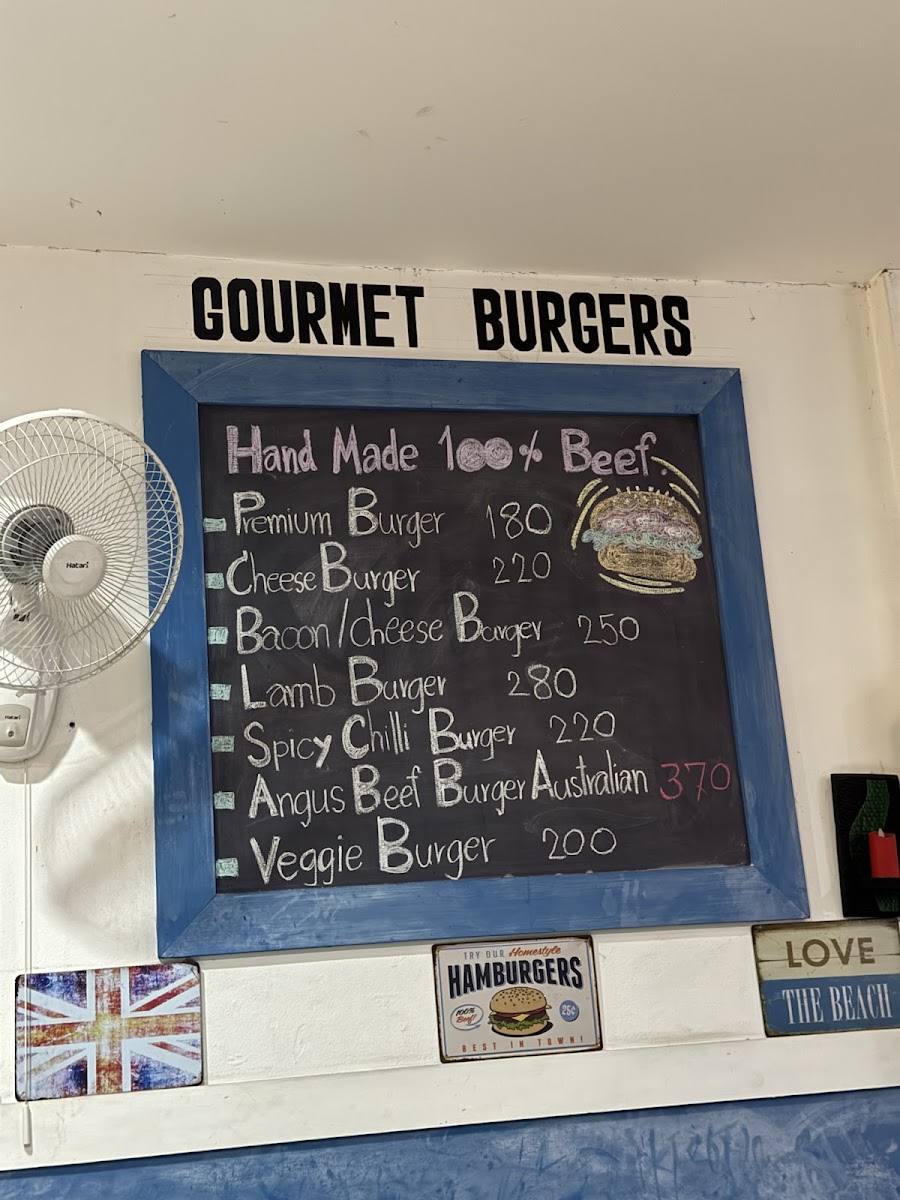 GOURMET BURGERS
Hand Made 100% Beef
Premium Burger 180
Cheese Burger 220
Bacon/cheese Burger 250
Lamb Burger 280
Spicy Chilli Burger 220
Angus Beef Burger Australian 370
Veggie Burger 200
Hatari
Hatari
TRY OUR Homestyle
HAMBURGERS
100%
Beef!
25¢
BEST IN TOWN!
LOVE
THE BEACH